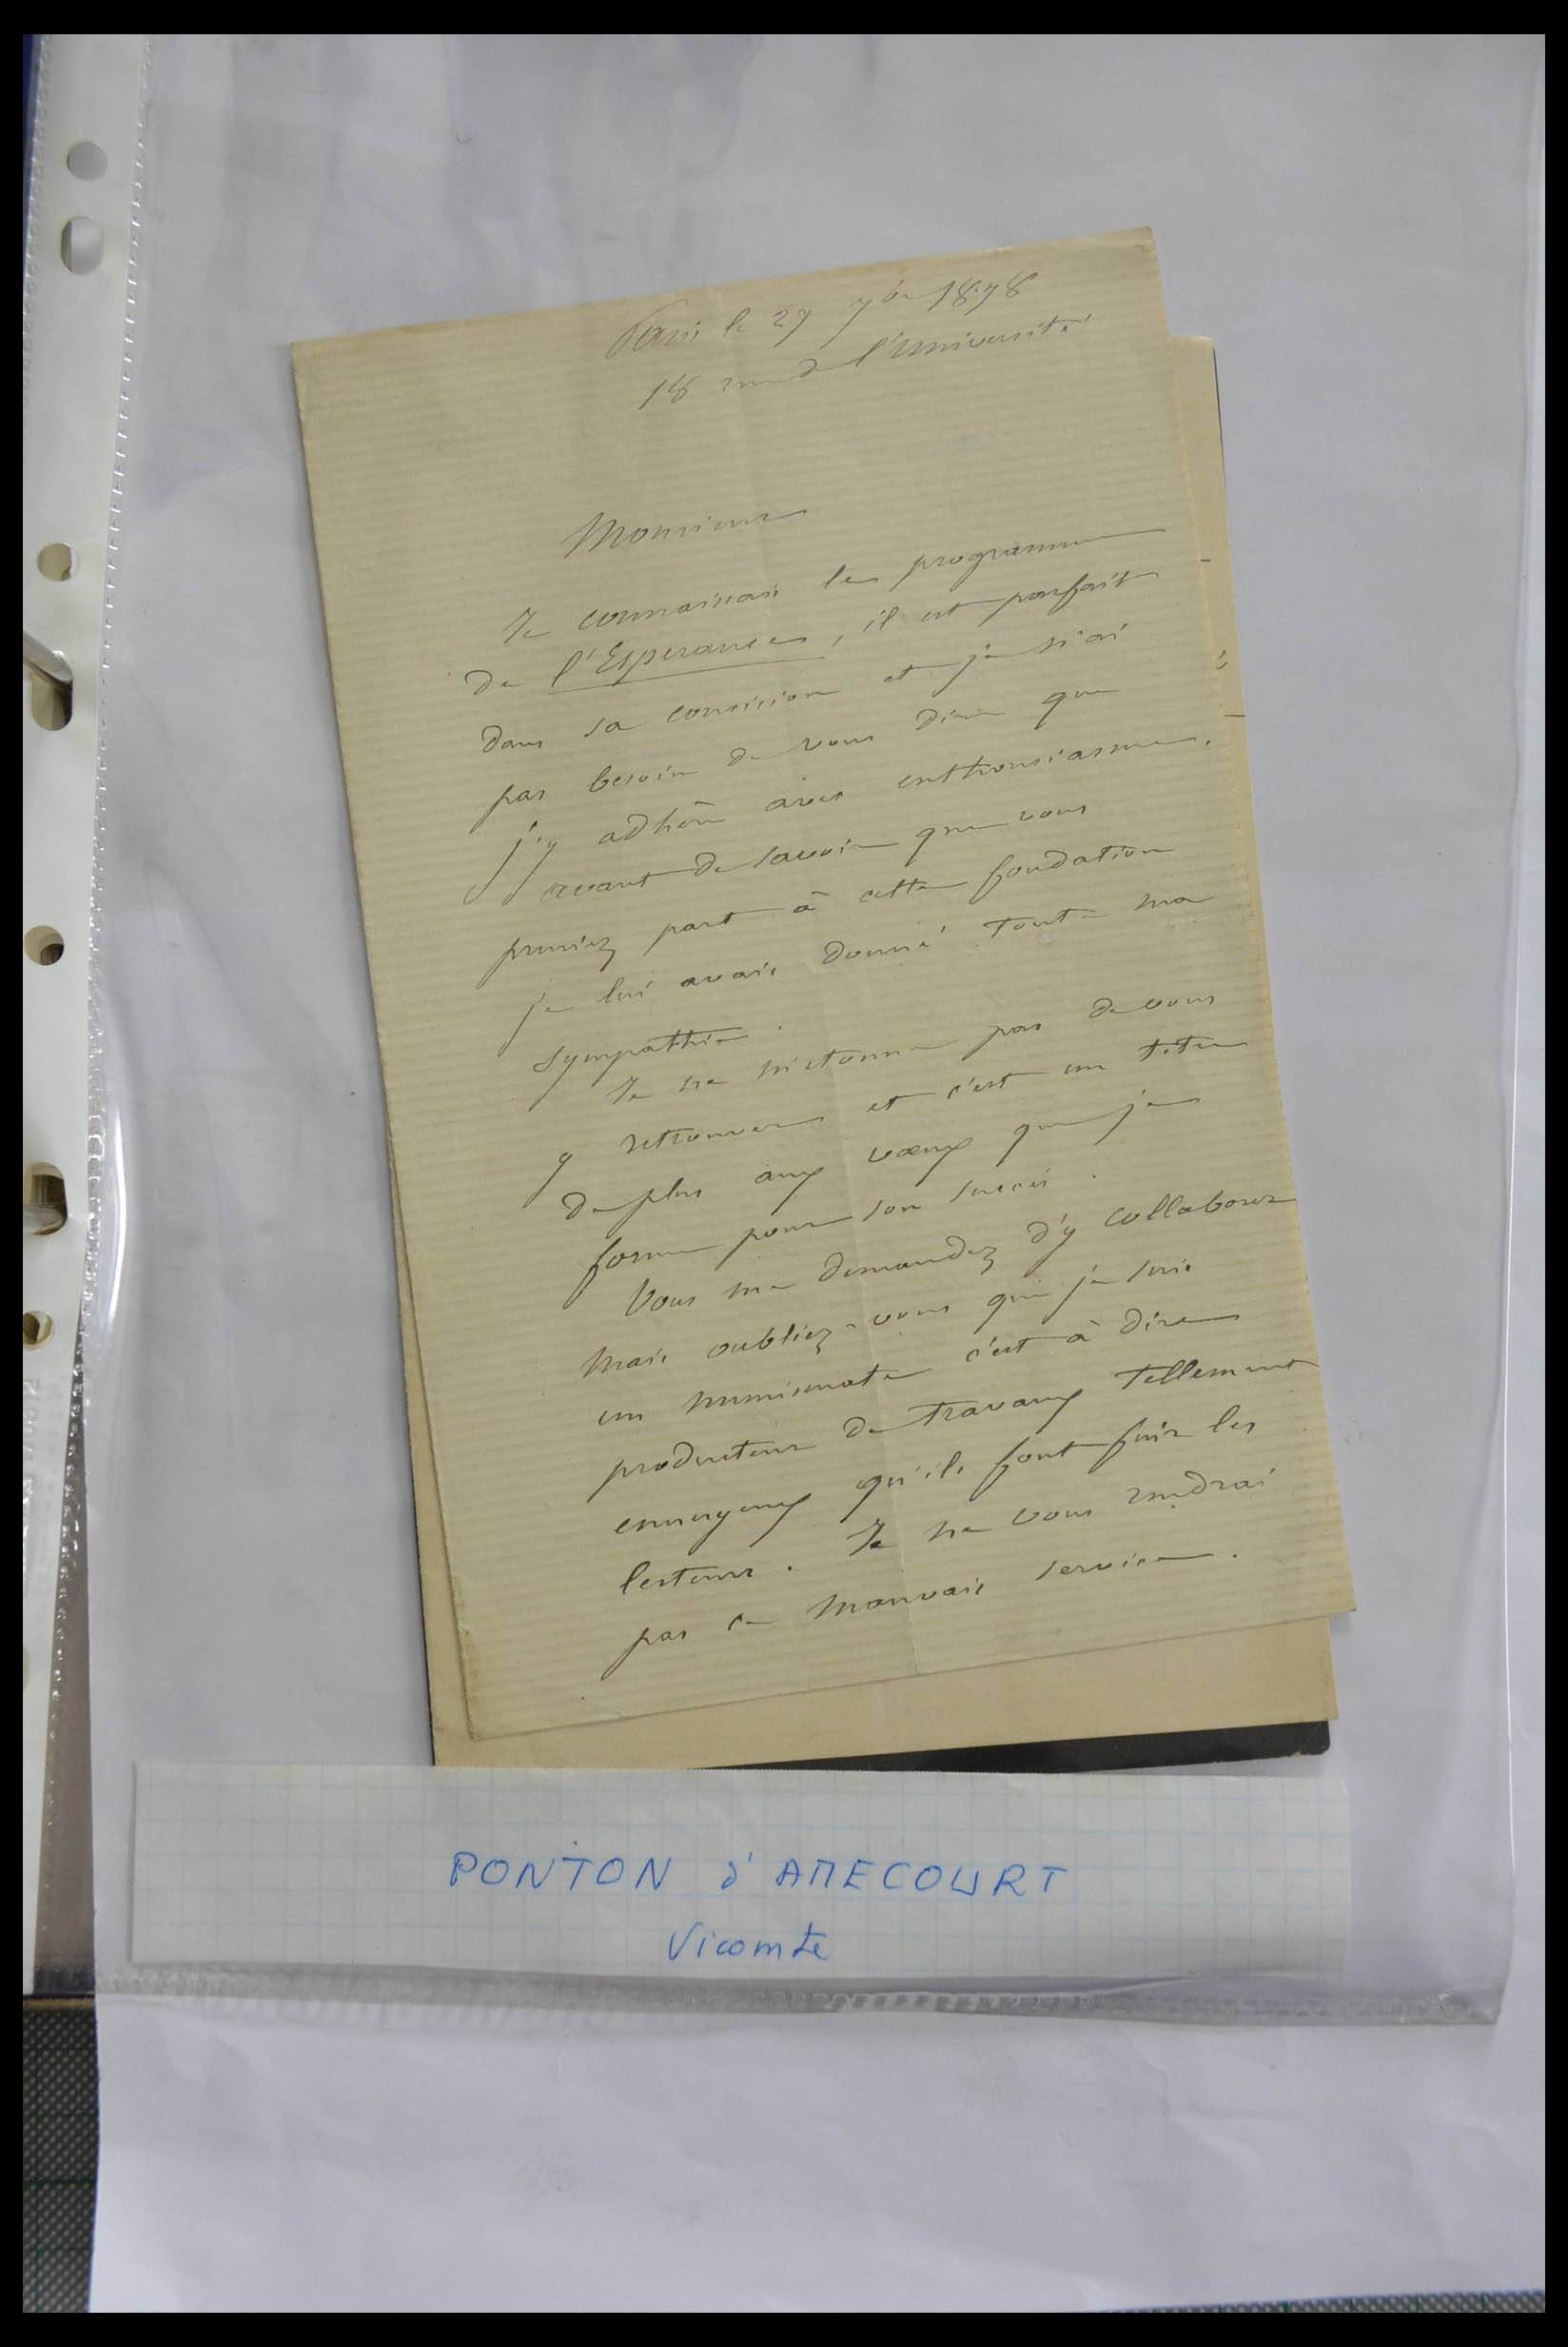 Paris le 27 7bre 1878
18 rue de l'Université
Monsieur
Je connaissais le programme
de l'Esperance, il est parfait
dans sa concision et je n'ai
pas besoin de vous dire que
j'y adhère avec enthousiasme,
avant de savoir que vous
preniez part à cette fondation
je lui avais donné toute ma
sympathie.
Je ne m'etonne pas de vous
y retrouver et c'est un titre
de plus aux vœux que je
forme pour son succès.
Vous me demandez d'y collaborer
mais oubliez-vous que je suis
un numismate c'est à dire
producteur de travaux tellement
ennuyeux qu'ils font fuir les
lecteurs. Je ne vous rendrai
pas ce mauvais service.
PONTON d'AMECOURT
Vicomte